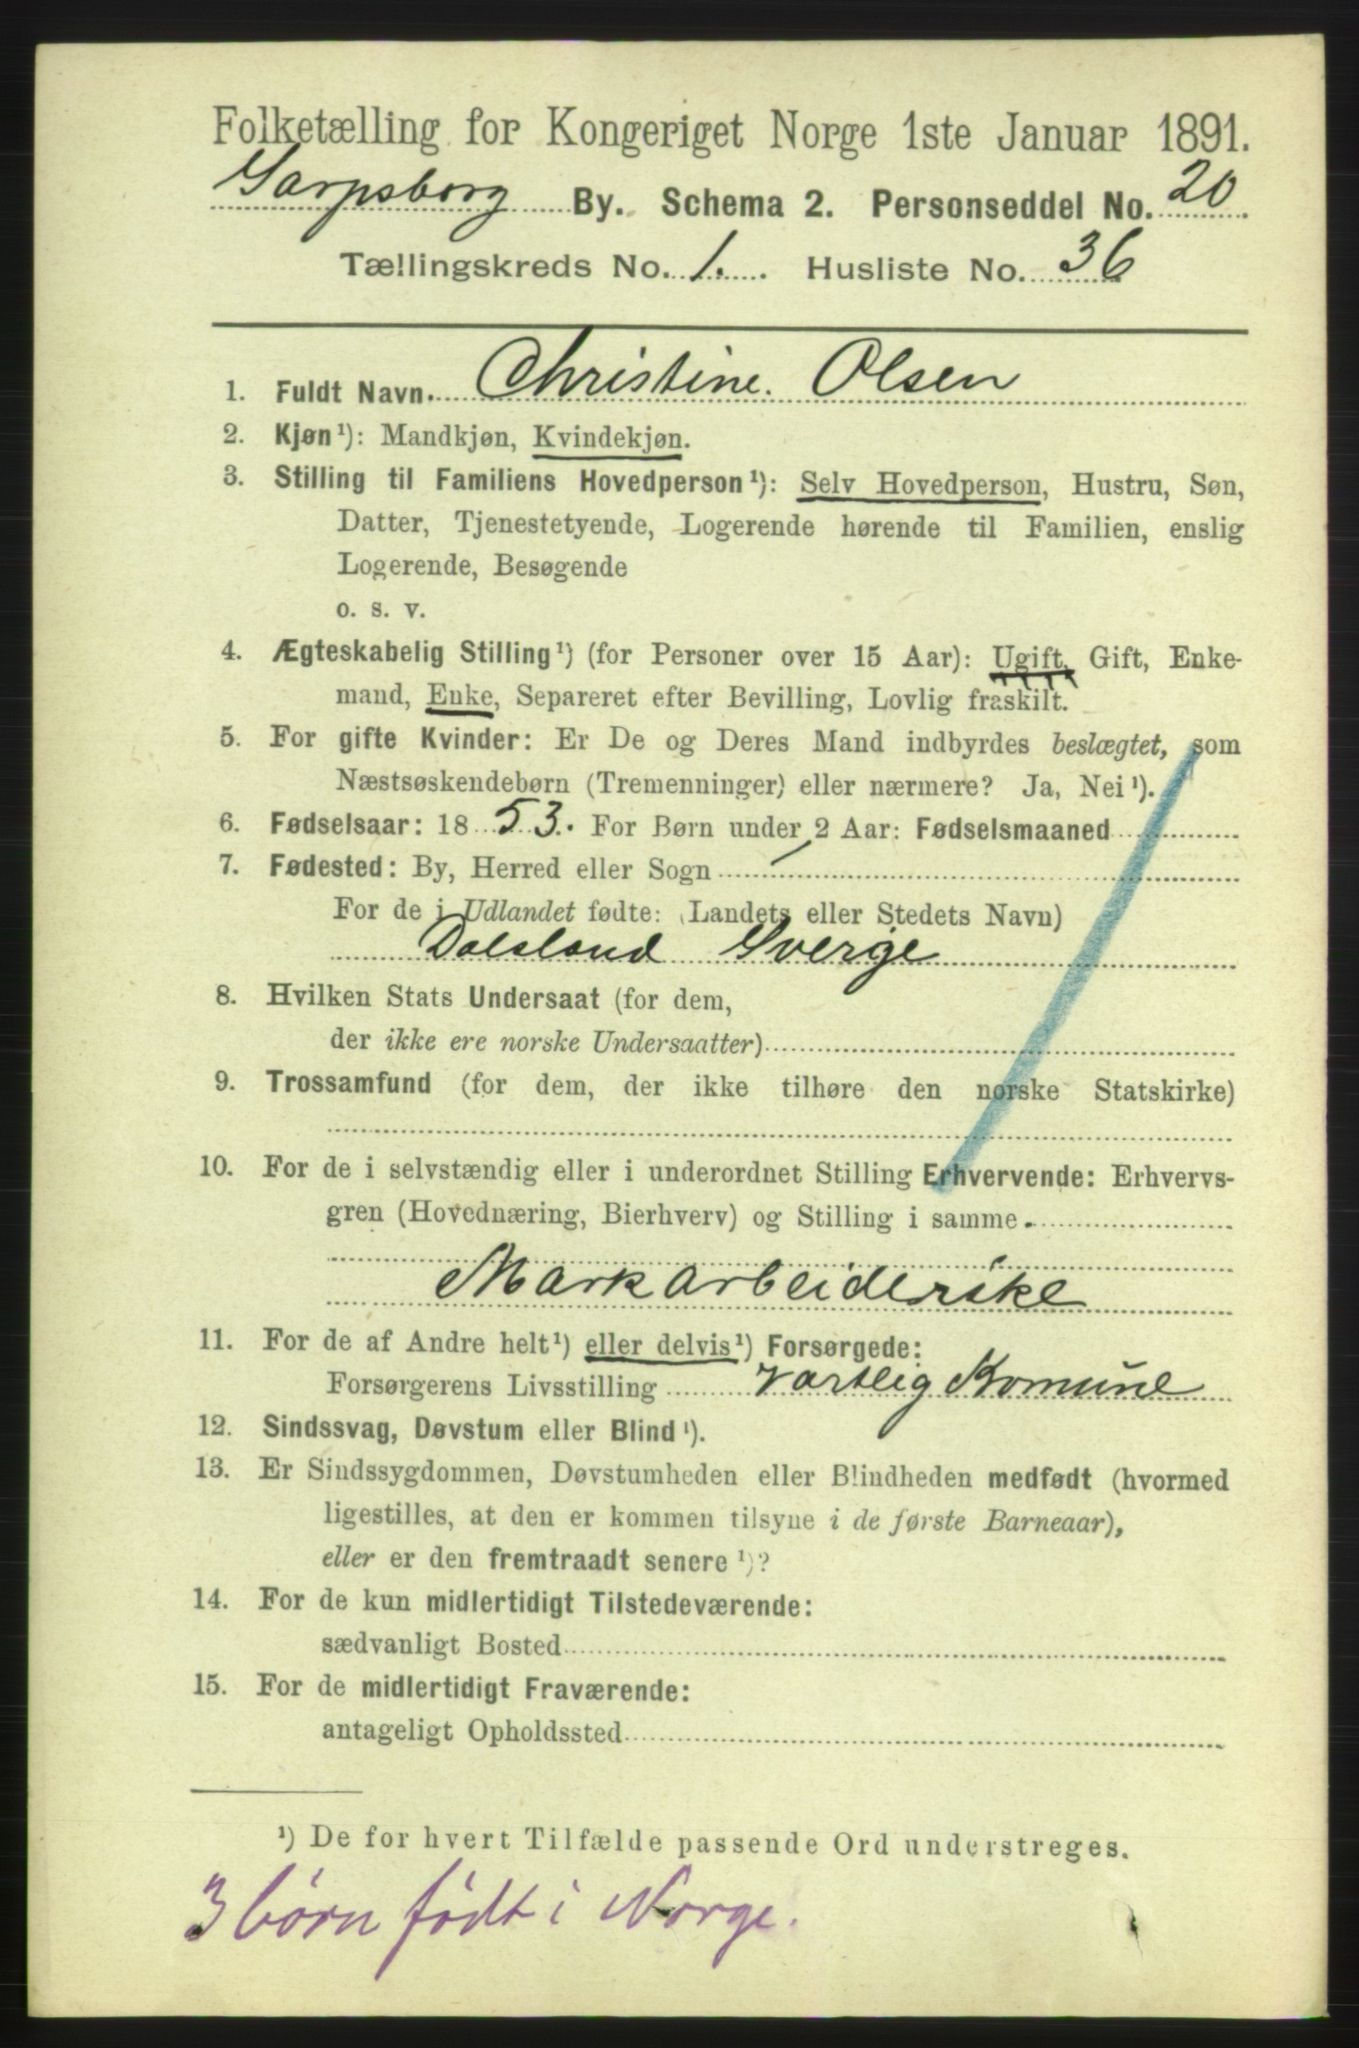 Folketælling for Kongeriget Norge 1ste Januar 1891.
Sarpsborg By. Schema 2. Personseddel No. 20
Tællingskreds No. 1. Husliste No. 36
1. Fuldt Navn. Christine. Olsen
2. Kjøn¹): Mandkjøn, Kvindekjøn.
3. Stilling til Familiens Hovedperson¹): Selv Hovedperson, Hustru, Søn,
Datter, Tjenestetyende, Logerende hørende til Familien, enslig
Logerende, Besøgende
o. s. v.
4. Ægteskabelig Stilling¹) (for Personer over 15 Aar): Ugift, Gift, Enke-
mand, Enke, Separeret efter Bevilling, Lovlig fraskilt.
5. For gifte Kvinder: Er De og Deres Mand indbyrdes beslægtet, som
Næstsøskendebørn (Tremenninger) eller nærmere? Ja, Nei¹).
6. Fødselsaar: 1853. For Børn under 2 Aar: Fødselsmaaned
7. Fødested: By, Herred eller Sogn
For de i Udlandet fødte: (Landets eller Stedets Navn)
Dalsland Sverige
8. Hvilken Stats Undersaat (for dem,
der ikke ere norske Undersaatter)
9. Trossamfund (for dem, der ikke tilhøre den norske Statskirke)
10. For de i selvstændig eller i underordnet Stilling Erhvervende: Erhvervs-
gren (Hovednæring, Bierhverv) og Stilling i samme.
Markarbeiderske
11. For de af Andre helt¹) eller delvis¹) Forsørgede:
Forsørgerens Livsstilling vartlig Komune
12. Sindssvag, Døvstum eller Blind¹).
13. Er Sindssygdommen, Døvstumheden eller Blindheden medfødt (hvormed
ligestilles, at den er kommen tilsyne i de første Barneaar),
eller er den fremtraadt senere¹)?
14. For de kun midlertidigt Tilstedeværende:
sædvanligt Bosted
15. For de midlertidigt Fraværende:
antageligt Opholdssted
¹) De for hvert Tilfælde passende Ord understreges.
3 børn født i Norge.